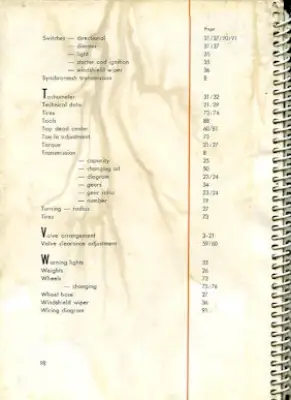 Page
Switches — directional 31/37/90/91
— dimmer 31/37
— light 35
— starter and ignition 35
— windshield wiper 36
Synchromesh transmission 8
Tachometer 31/32
Technical data 21/29
Tires 73/76
Tools 88
Top dead center 60/81
Toe-in adjustment 72
Torque 21/27
Transmission 8
— capacity 25
— changing oil 50
— diagram 23/24
— gears 34
— gear ratio 23/24
— number 19
Turning — radius 27
Tires 73
Valve arrangement 3-21
Valve clearance adjustment 59/60
Warning lights 32
Weights 26
Wheels 73
— changing 75/76
Wheel base 27
Windshield wiper 36
Wiring diagram 91
98